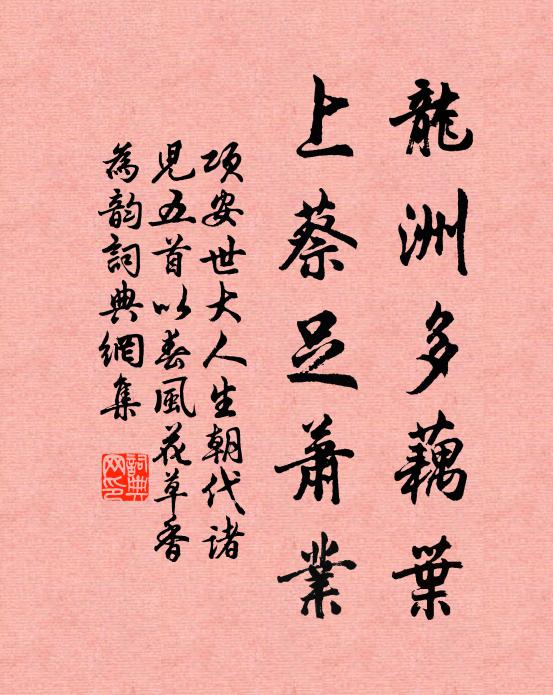 龍洲多藕葉
上蔡足蕭業
項安世大人生朝代諸
兒五首以春風花草香
為韵詞典網集
詞典網印